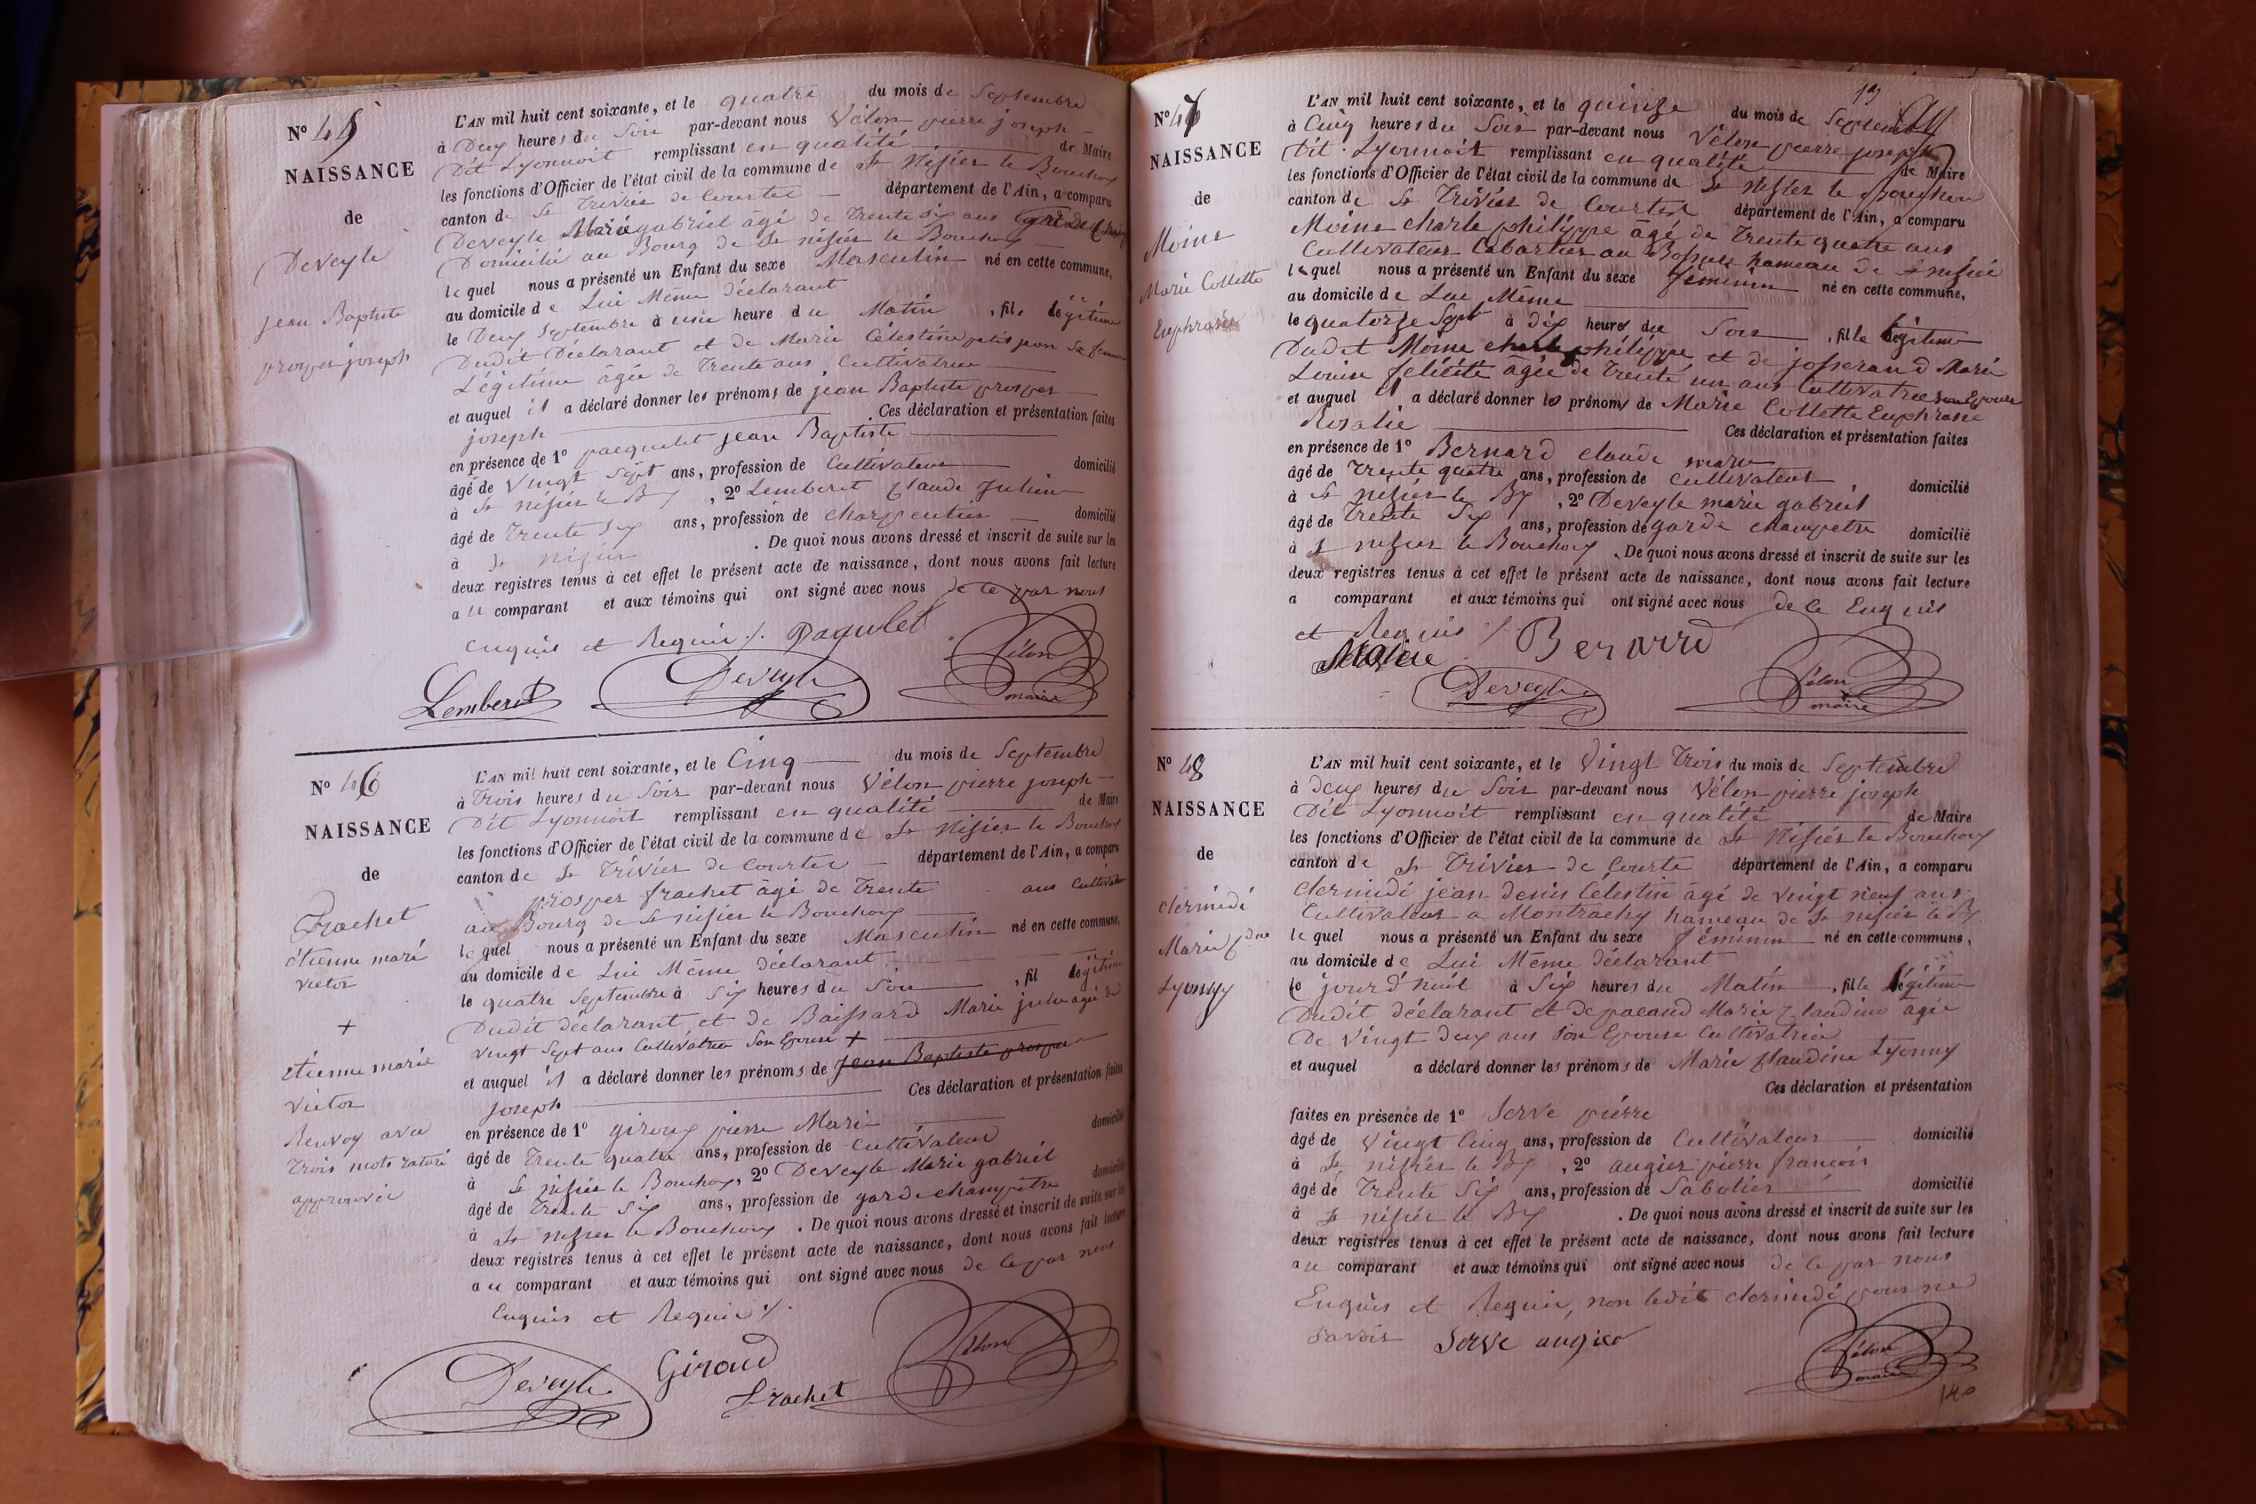 N° 45
NAISSANCE
de
Deveyle
Jean Baptiste
prosper joseph
L'AN mil huit cent soixante, et le quatre du mois de Septembre
à Deux heures du Soir par-devant nous Vélon pierre joseph
Dit Lyonnoit remplissant en qualité de Maire
les fonctions d'Officier de l'état civil de la commune de St Nisier le Bouchoux
canton de St Trivier de Courtes département de l'Ain, a comparu
Deveyle Marie gabriel âgé de Trente six ans
Domicilié au Bourg de St nisier le Bouchoux
lequel nous a présenté un Enfant du sexe Masculin né en cette commune,
au domicile de Lui Même déclarant
le Deux Septembre à une heure du Matin, fils légitime
Dudit Déclarant et de Marie Célestine petitjean Sa femme
Légitime âgée de Trente ans Cultivatrice
et auquel il a déclaré donner les prénoms de jean Baptiste prosper
joseph . Ces déclaration et présentation faites
en présence de 1° pacquelet jean Baptiste
âgé de vingt Sept ans, profession de Cultivateur domicilié
à St nisier le Bx , 2° Lemberet Claude Julien
âgé de Trente Six ans, profession de charpentier domicilié
à St nisier . De quoi nous avons dressé et inscrit de suite sur les
deux registres tenus à cet effet le présent acte de naissance, dont nous avons fait lecture
au comparant et aux témoins qui ont signé avec nous de ce par nous
enquis et Requis ./. Paqulet
Vélon
maire
Lemberet Deveyle
N° 46
NAISSANCE
de
Frachet
étienne marie
victor
+
étienne marie
victor
Renvoy avec
trois mots raturé
approuvée
L'AN mil huit cent soixante, et le Cinq du mois de Septembre
à Trois heures du Soir par-devant nous Vélon pierre joseph
Dit Lyonnoit remplissant en qualité de Maire
les fonctions d'Officier de l'état civil de la commune de St Nisier le Bouchoux
canton de St Trivier de Courtes département de l'Ain, a comparu
prosper frachet âgé de Trente ans Cultivateur
au Bourg de St nisier le Bouchoux
lequel nous a présenté un Enfant du sexe Masculin né en cette commune,
au domicile de Lui Même déclarant
le quatre Septembre à Six heures du Soir , fil légitime
Dudit déclarant et de Baissard Marie julie agée de
vingt Sept ans Cultivatrice Son Epouse +
et auquel il a déclaré donner les prénoms de Jean Baptiste prosper
joseph Ces déclaration et présentation faites
en présence de 1° giroux pierre Marie domicilié
âgé de Trente quatre ans, profession de Cultivateur
à St nisier le Bouchoux, 2° Deveyle Marie gabriel
âgé de Trente Six ans, profession de garde champêtre domicilié
à St nisier le Bouchoux . De quoi nous avons dressé et inscrit de suite sur les
deux registres tenus à cet effet le présent acte de naissance, dont nous avons fait lecture
au comparant et aux témoins qui ont signé avec nous de ce par nous
Enquis et Requis ./.
Deveyle Giroud Frachet Vélon
N° 47
NAISSANCE
de
Moine
Marie Collette
Euphrasie
19
L'AN mil huit cent soixante, et le quinze du mois de Septembre
à Cinq heures du Soir par-devant nous Vélon pierre joseph
Dit Lyonnoit remplissant en qualité de Maire
les fonctions d'Officier de l'état civil de la commune de St Nisier le Bouchoux
canton de St Trivier de Courtes département de l'Ain, a comparu
Moine charle philippe âgé de Trente quatre ans
Cultivateur Cabartier au hameau de St nisier
lequel nous a présenté un Enfant du sexe féminin né en cette commune,
au domicile de Lui Même
le quatorze Sept à dix heures du Soir , fille légitime
Dudit Moine charle philippe et de josserand Marie
Louise felicité âgée de Trente un ans Cultivatrice Son Epouse
et auquel il a déclaré donner les prénoms de Marie Collette Euphrasie
Rosalie Ces déclaration et présentation faites
en présence de 1° Bernard claude marie
âgé de Trente quatre ans, profession de Cultivateur domicilié
à St nisier le Bx , 2° Deveyle marie gabriel
âgé de Trente Six ans, profession de garde champetre domicilié
à St nisier le Bouchoux . De quoi nous avons dressé et inscrit de suite sur les
deux registres tenus à cet effet le présent acte de naissance, dont nous avons fait lecture
a comparant et aux témoins qui ont signé avec nous de ce Enquis
et Requis ./. Berard
Moine
Deveyle
Vélon
maire
N° 48
NAISSANCE
de
clermidé
Marie Cdine
Lyonny
L'AN mil huit cent soixante, et le Vingt Trois du mois de Septembre
à Deux heures du Soir par-devant nous Vélon pierre joseph
Dit Lyonnoit remplissant en qualité de Maire
les fonctions d'Officier de l'état civil de la commune de St Nisier le Bouchoux
canton de St Trivier de Courte département de l'Ain, a comparu
clermidé jean denis Célestin âgé de vingt neuf ans
Cultivateur a Montrachy hameau de St nisier le Bx
lequel nous a présenté un Enfant du sexe féminin né en cette commune,
au domicile de Lui Même déclarant
le jourd'huit à Six heures du Matin , fille légitime
Dudit déclarant et de pacaud Marie Claudine âgée
De vingt Deux ans Son Epouse Cultivatrice
et auquel a déclaré donner les prénoms de Marie Claudine Lyonny
Ces déclaration et présentation
faites en présence de 1° Serve pierre
âgé de Vingt Cinq ans, profession de Cultivateur domicilié
à St nisier le Bx , 2° augier pierre françois
âgé de Trente Six ans, profession de Sabotier domicilié
à St nisier le Bx . De quoi nous avons dressé et inscrit de suite sur les
deux registres tenus à cet effet le présent acte de naissance, dont nous avons fait lecture
au comparant et aux témoins qui ont signé avec nous de ce par nous
Enquis et Requis, non ledit clermidé pour ne
savoir Serve augier
Vélon
maire
140